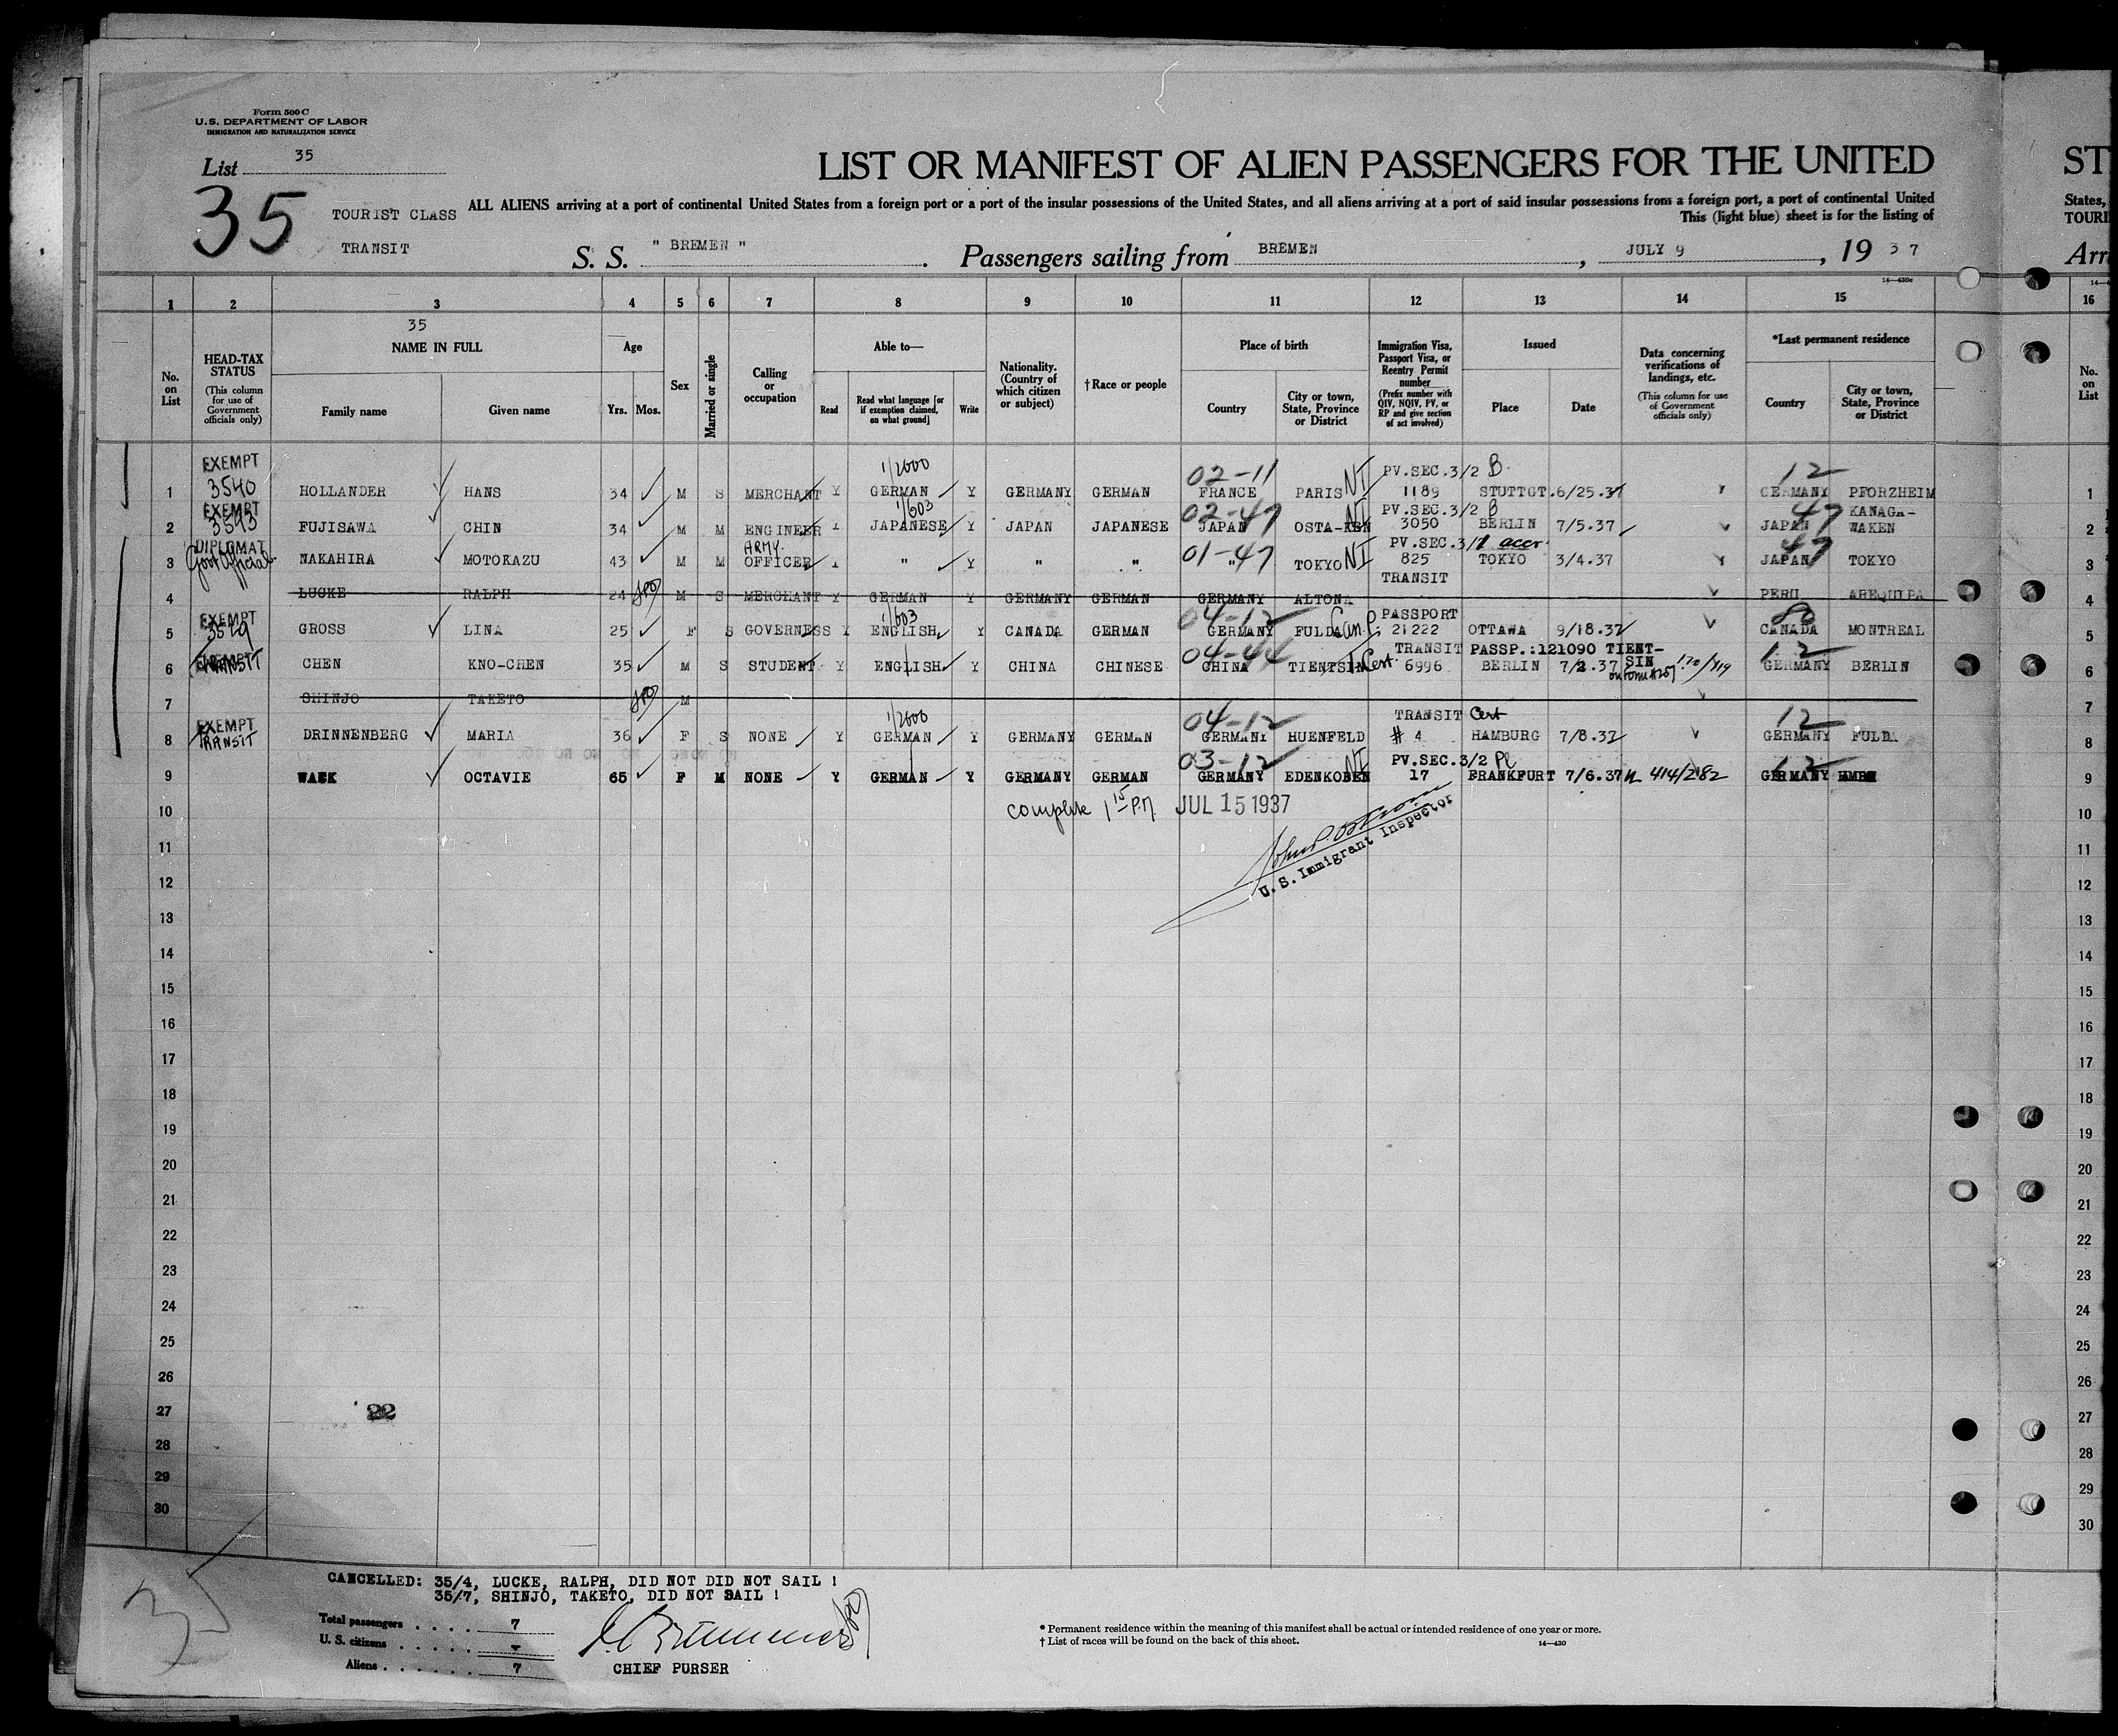 Form 500 C
U.S. DEPARTMENT OF LABOR
IMMIGRATION AND NATURALIZATION SERVICE
List 35
35
TOURIST CLASS
TRANSIT
LIST OR MANIFEST OF ALIEN PASSENGERS FOR THE UNITED
ST
ALL ALIENS arriving at a port of continental United States from a foreign port or a port of the insular possessions of the United States, and all aliens arriving at a port of said insular possessions from a foreign port, a port of continental United
States,
This (light blue) sheet is for the listing of
TOURI
S. S. " BREMEN " . Passengers sailing from BREMEN , JULY 9 , 19 37
Arri
14—430c
1 2 3 4 5 6 7 8 9 10 11 12 13 14 15 16
35
No. on List
HEAD-TAX STATUS (This column for use of Government officials only)
NAME IN FULL
Family name Given name
Age
Yrs. Mos.
Sex
Married or single
Calling or occupation
Able to—
Read Read what language [or if exemption claimed, on what ground] Write
Nationality. (Country of which citizen or subject)
†Race or people
Place of birth
Country City or town, State, Province or District
Immigration Visa, Passport Visa, or Reentry Permit number (Prefix number with QIV, NQIV, PV, or RP and give section of act involved)
Issued
Place Date
Data concerning verifications of landings, etc. (This column for use of Government officials only)
*Last permanent residence
Country City or town, State, Province or District
No. on List
EXEMPT 1/2000 02-11 NI PV.SEC.3/2 B 12
1 3540 HOLLANDER HANS 34 M S MERCHANT Y GERMAN Y GERMANY GERMAN FRANCE PARIS 1189 STUTTGT. 6/25.37 GERMANY PFORZHEIM 1
EXEMPT 1/603 02-47 NI PV.SEC.3/2 B 47 KANAGA-
2 3543 FUJISAWA CHIN 34 M M ENGINEER Y JAPANESE Y JAPAN JAPANESE JAPAN OSTA-KEN 3050 BERLIN 7/5.37 JAPAN WAKEN 2
DIPLOMAT ARMY. 01-47 NI PV.SEC.3/1 accr. 47
3 Govt Official NAKAHIRA MOTOKAZU 43 M M OFFICER Y " Y " " " TOKYO 825 TOKYO 3/4.37 JAPAN TOKYO 3
TRANSIT
4 LUCKE RALPH 24 M S MERCHANT Y GERMAN Y GERMANY GERMAN GERMANY ALTONA PERU AREQUIPA 4
EXEMPT 1/603 04-12 Can. P. PASSPORT 80
5 3529 GROSS LINA 25 F S GOVERNESS Y ENGLISH Y CANADA GERMAN GERMANY FULDA 21222 OTTAWA 9/18.37 CANADA MONTREAL 5
EXEMPT TRANSIT 04-44 Cert. TRANSIT PASSP.:121090 TIENT- 12
6 CHEN KNO-CHEN 35 M S STUDENT Y ENGLISH Y CHINA CHINESE CHINA TIENTSIN 6996 BERLIN 7/2.37 SIN GERMANY BERLIN 6
7 SHINJO TAKETO M 7
EXEMPT 1/2000 04-12 TRANSIT Cert 12
8 TRANSIT DRINNENBERG MARIA 36 F S NONE Y GERMAN Y GERMANY GERMAN GERMANY HUENFELD # 4 HAMBURG 7/8.37 GERMANY FULDA 8
03-12 NI PV.SEC.3/2 Pl 12
9 OCTAVIE 65 F M NONE Y GERMAN Y GERMANY GERMAN GERMANY EDENKOBEN 17 FRANKFURT 7/6.37 414/282 GERMANY 9
10 complete 1 15 P.M. JUL 15 1937 10
U. S. Immigrant Inspector
11 11
12 12
13 13
14 14
15 15
16 16
17 17
18 18
19 19
20 20
21 21
22 22
23 23
24 24
25 25
26 26
27 22 27
28 28
29 29
30 30
35
CANCELLED: 35/4, LUCKE, RALPH, DID NOT DID NOT SAIL !
35/7, SHINJO, TAKETO, DID NOT SAIL !
Total passengers . . . . 7
U. S. citizens . . . . . -
Aliens . . . . . . 7
CHIEF PURSER
* Permanent residence within the meaning of this manifest shall be actual or intended residence of one year or more.
† List of races will be found on the back of this sheet.
14—430